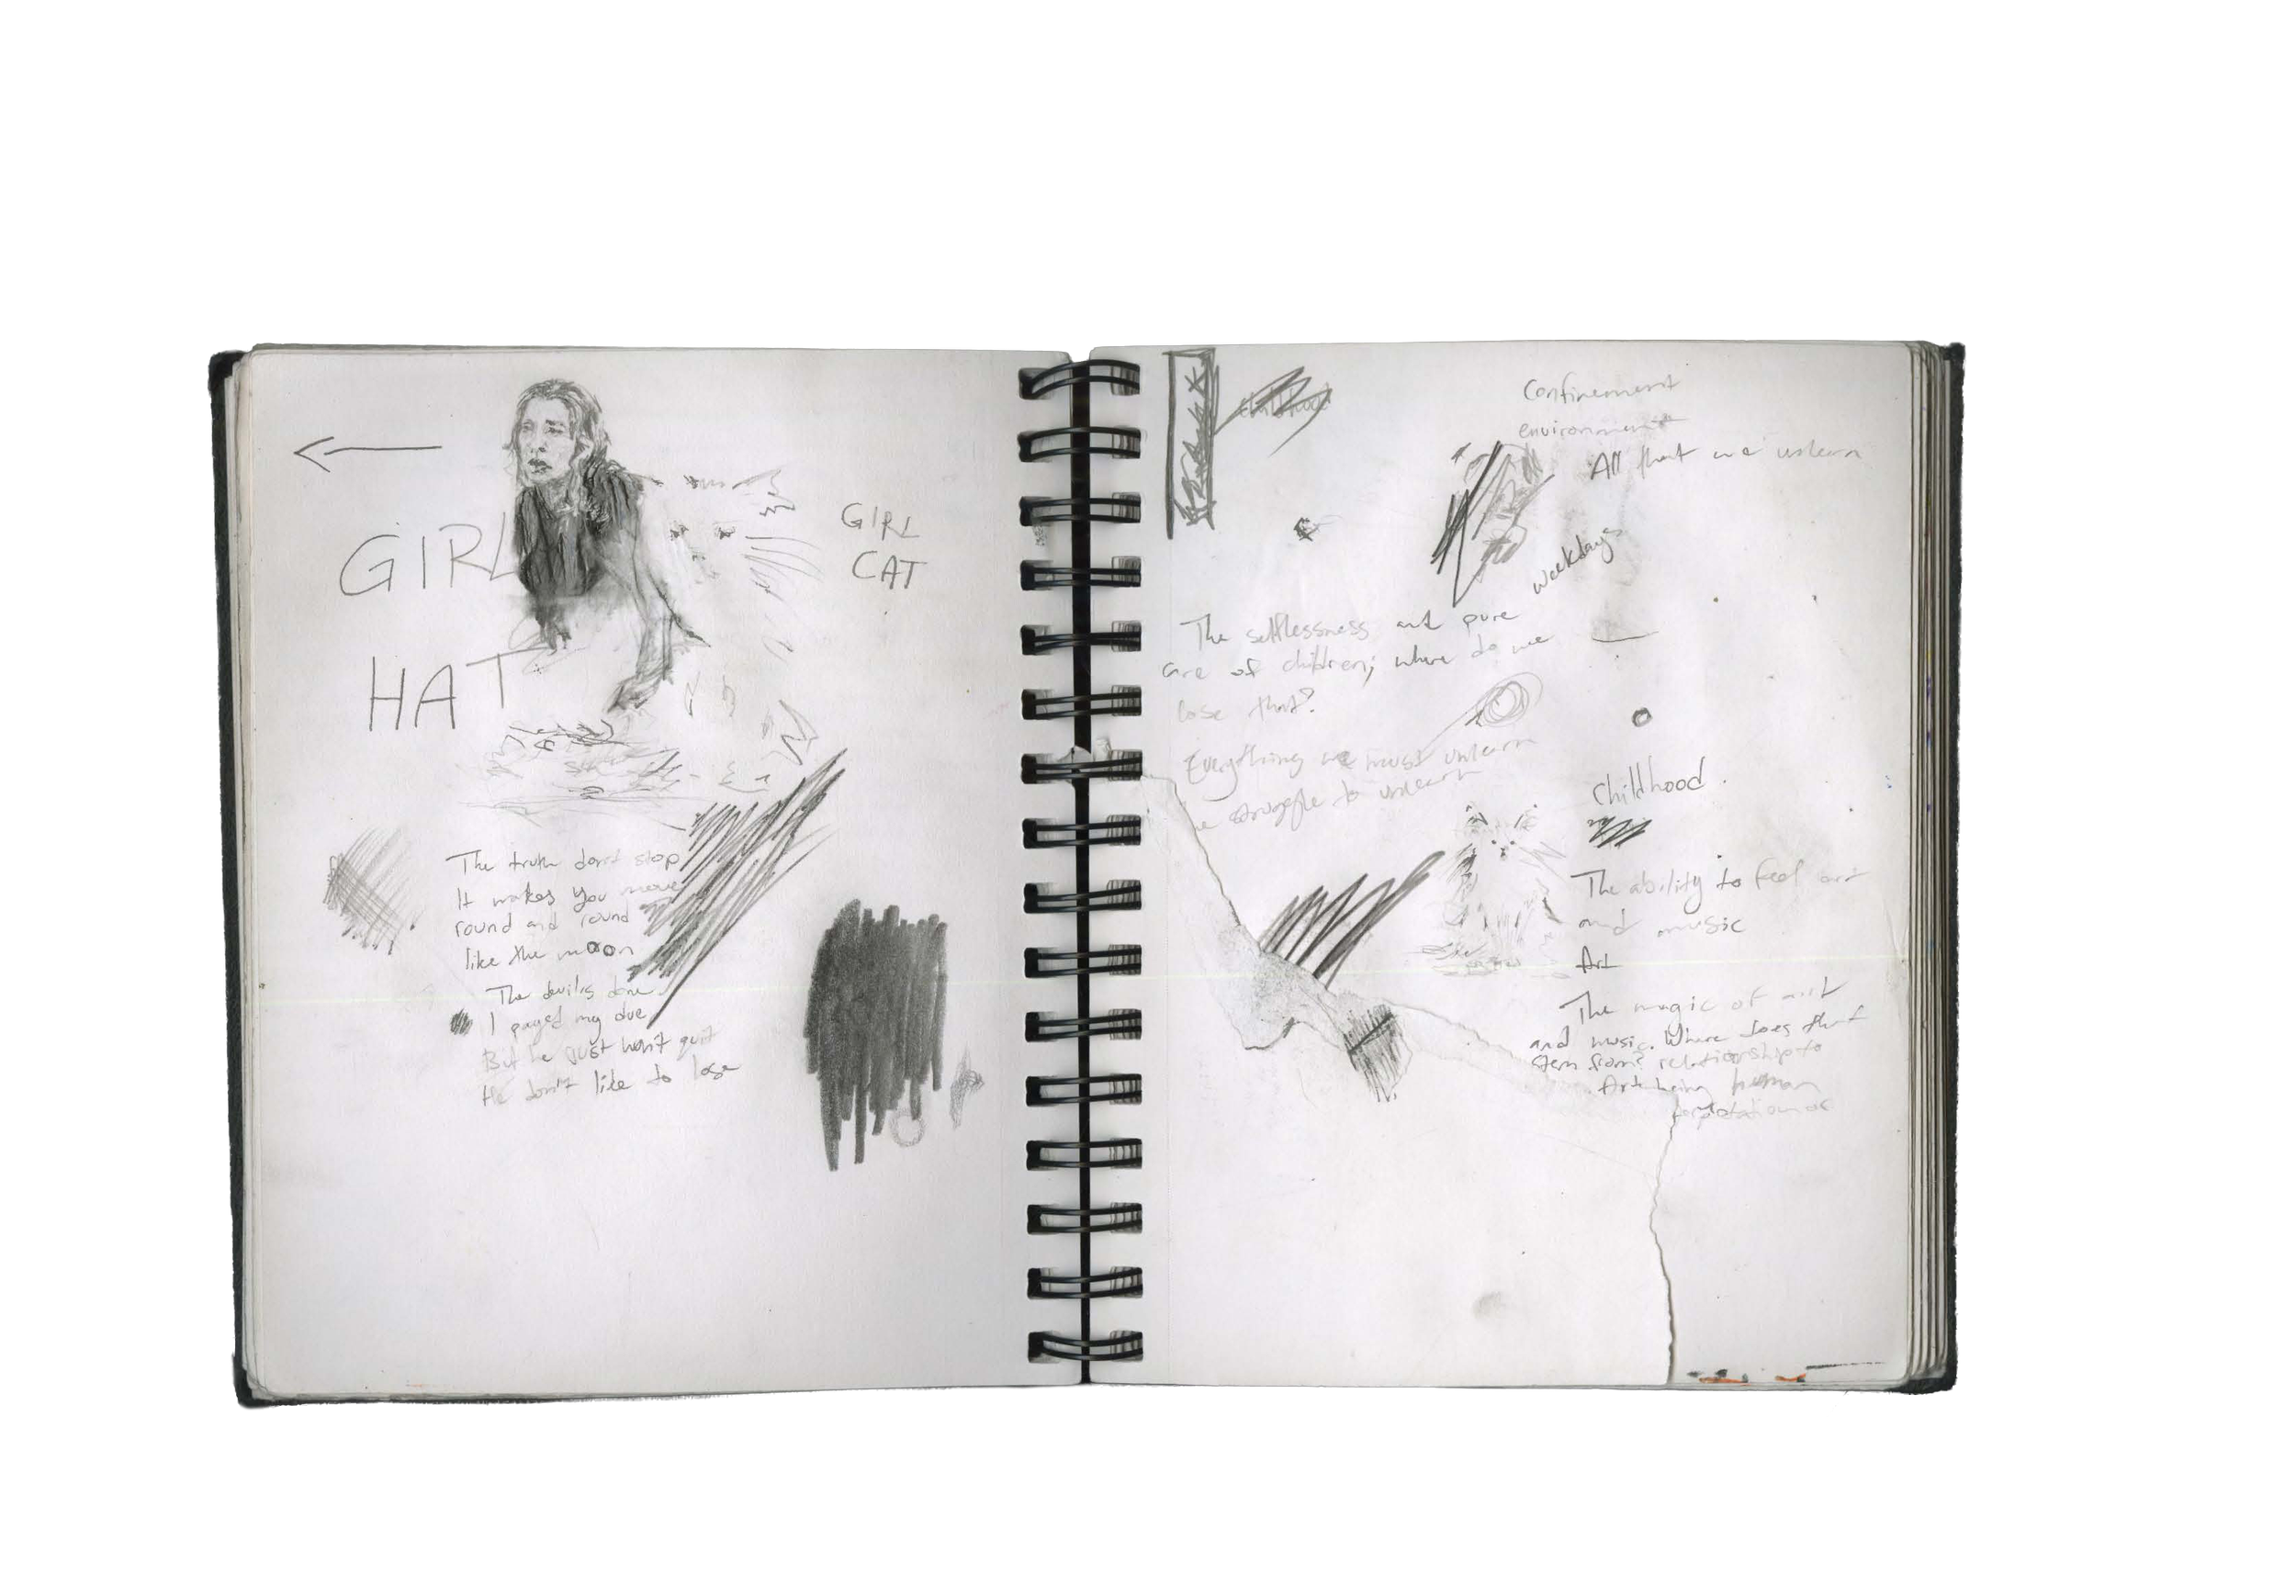 GIRL
HAT
GIRL
CAT
The truth don't stop
It makes you move
round and round
like the moon
The devils done
I payed my due
But he just won't quit
He don't like to lose
childhood
Confinement
environment
All that we unlearn
weekdays
The selflessness and pure
care of children; where do we
lose that?
Everything we must unlearn
we struggle to unlearn
Childhood.
The ability to feel art
and music
Art
The magic of art
and music. Where does that
stem from? relationship to
Art being human